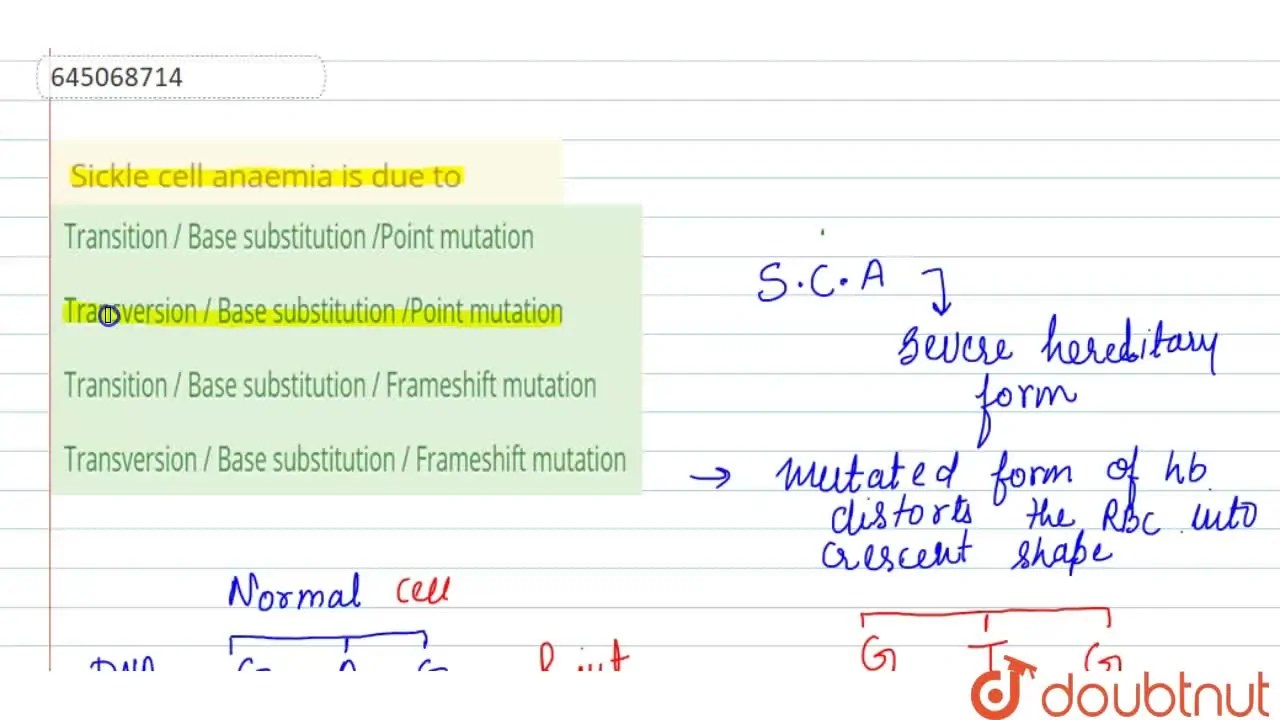 645068714
Sickle cell anaemia is due to
Transition / Base substitution /Point mutation
Transversion / Base substitution /Point mutation
Transition / Base substitution / Frameshift mutation
Transversion / Base substitution / Frameshift mutation
S.C.A
severe hereditary
form
→ mutated form of hb
distorts the RBC into
crescent shape
Normal cell
DNA G A G
Point
G T G
doubtnut